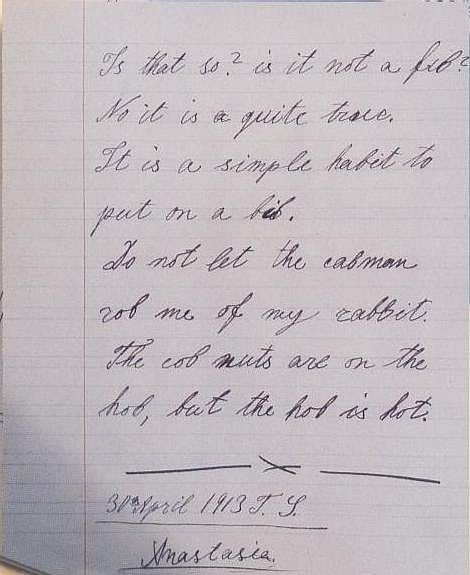 Is that so? is it not a fib?
No it is a quite true.
It is a simple habit to
put on a bib.
Do not let the cabman
rob me of my rabbit.
The cob nuts are on the
hob, but the hob is hot.
30th April 1913 T. S.
Anastasia.